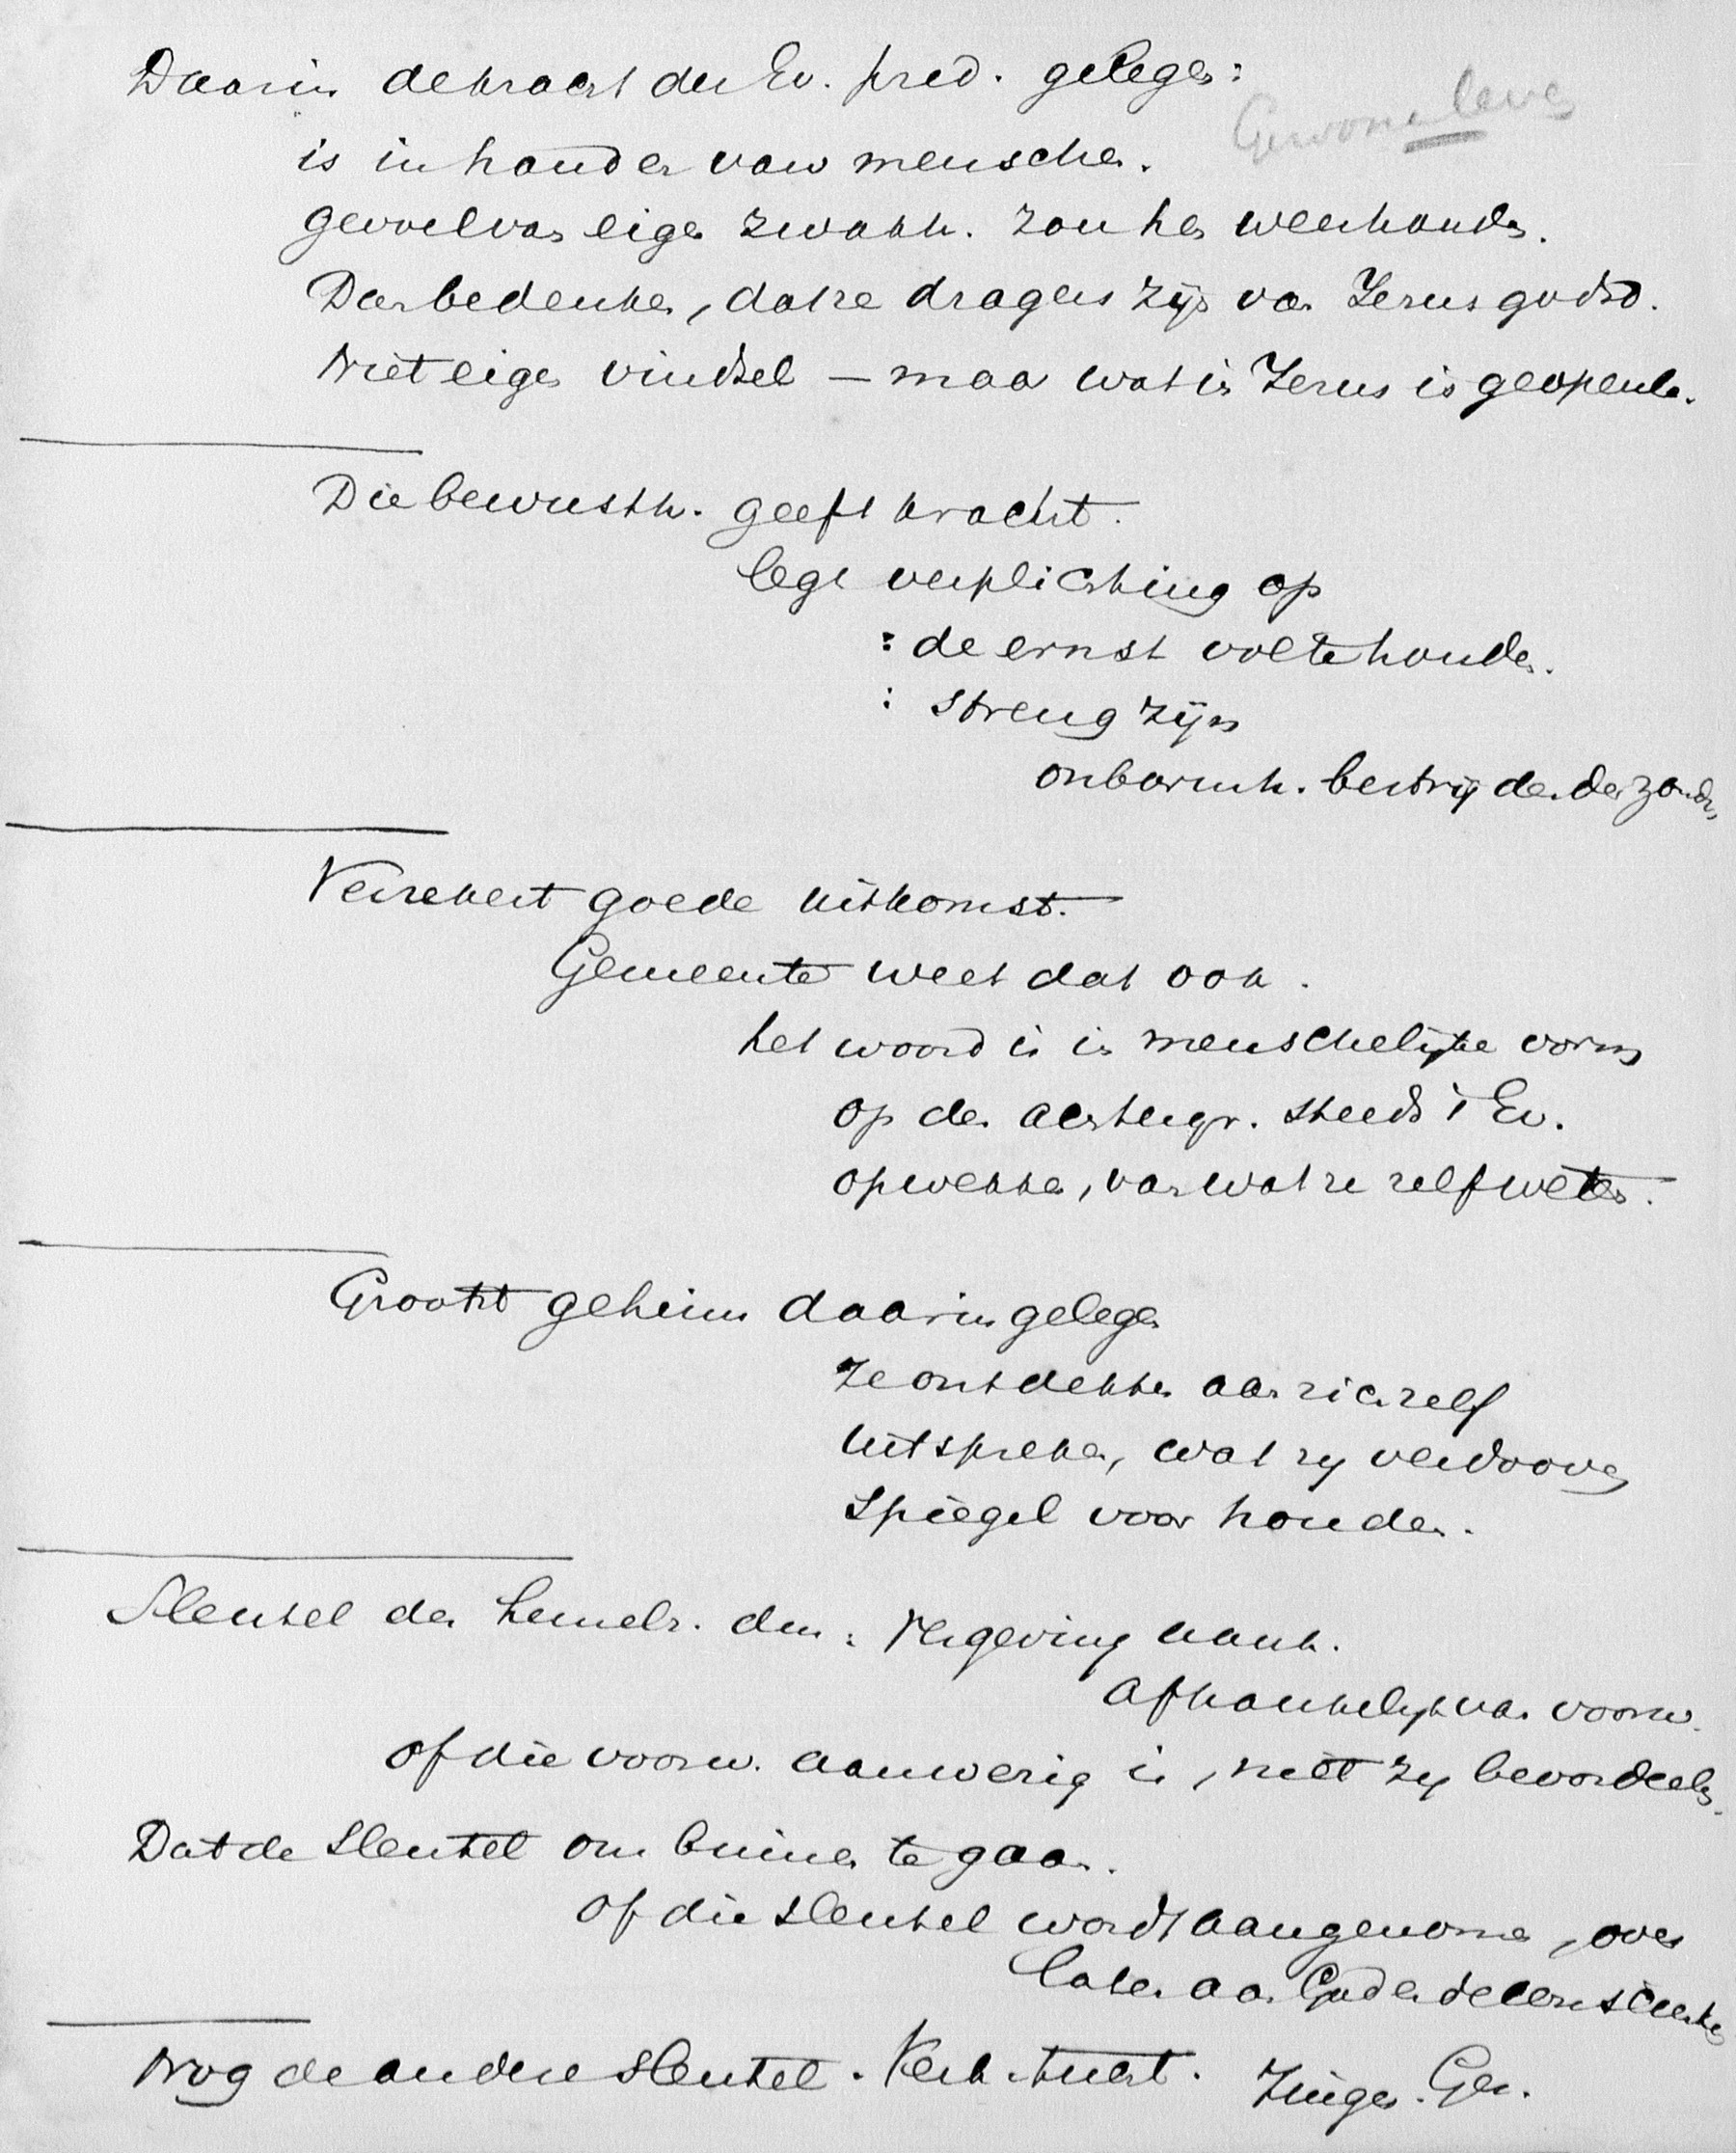 Daarin de kracht der Ev. pred. gelegen:
Gewone leven
is in handen van menschen.
gevoel van eigen zwakh. zou hen weerhouden.
Dan bedenken, dat ze dragers zijn van Jezus godsd.
Niet eigen vindsel — maar wat in Jezus is geopenb.
Die bewusth. geeft kracht.
legt verplichting op
: de ernst vol te houden.
: streng zijn
onbarmh. bestrijden der zonden,
Verzekert goede uitkomst.
Gemeente weet dat ook.
het woord is in menschelijke vorm
op den achtergr. steeds 't Ev.
opwekken, van wat ze zelf weten.
Grootst geheim daarin gelegen
Ze ontdekken aan zichzelf
Uitspreken, wat zij verdooven
Spiegel voor houden.
Sleutel der hemelr. dus: Vergeving aank.
Afhankelijk van voorw.
of die voorw. aanwezig is, niet zij beoordeelen.
Dat de sleutel om binnen te gaan.
Of die sleutel wordt aangenomen, over
laten aan God en de
Nog de andere sleutel. Kerk. tucht. Zingen. Gez.